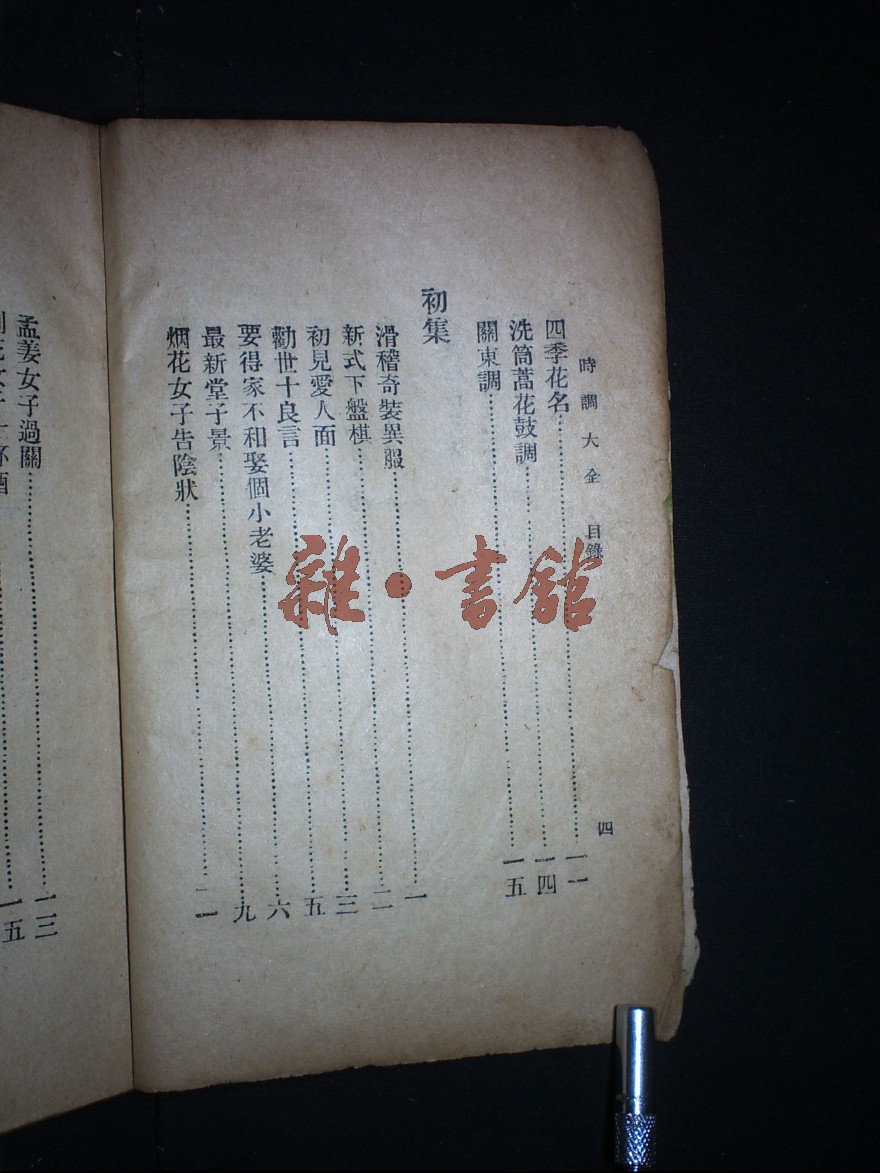 時調大全 目錄 四
四季花名……一一
洗筒蒿花鼓調……一四
關東調……一五
初集
滑稽奇裝異服……一
新式下盤棋……二
初見愛人面……三
勸世十良言……五
要得家不和娶個小老婆……六
最新堂子景……九
烟花女子告陰狀……一一
孟姜女子過關……一三
一五
雜·書館